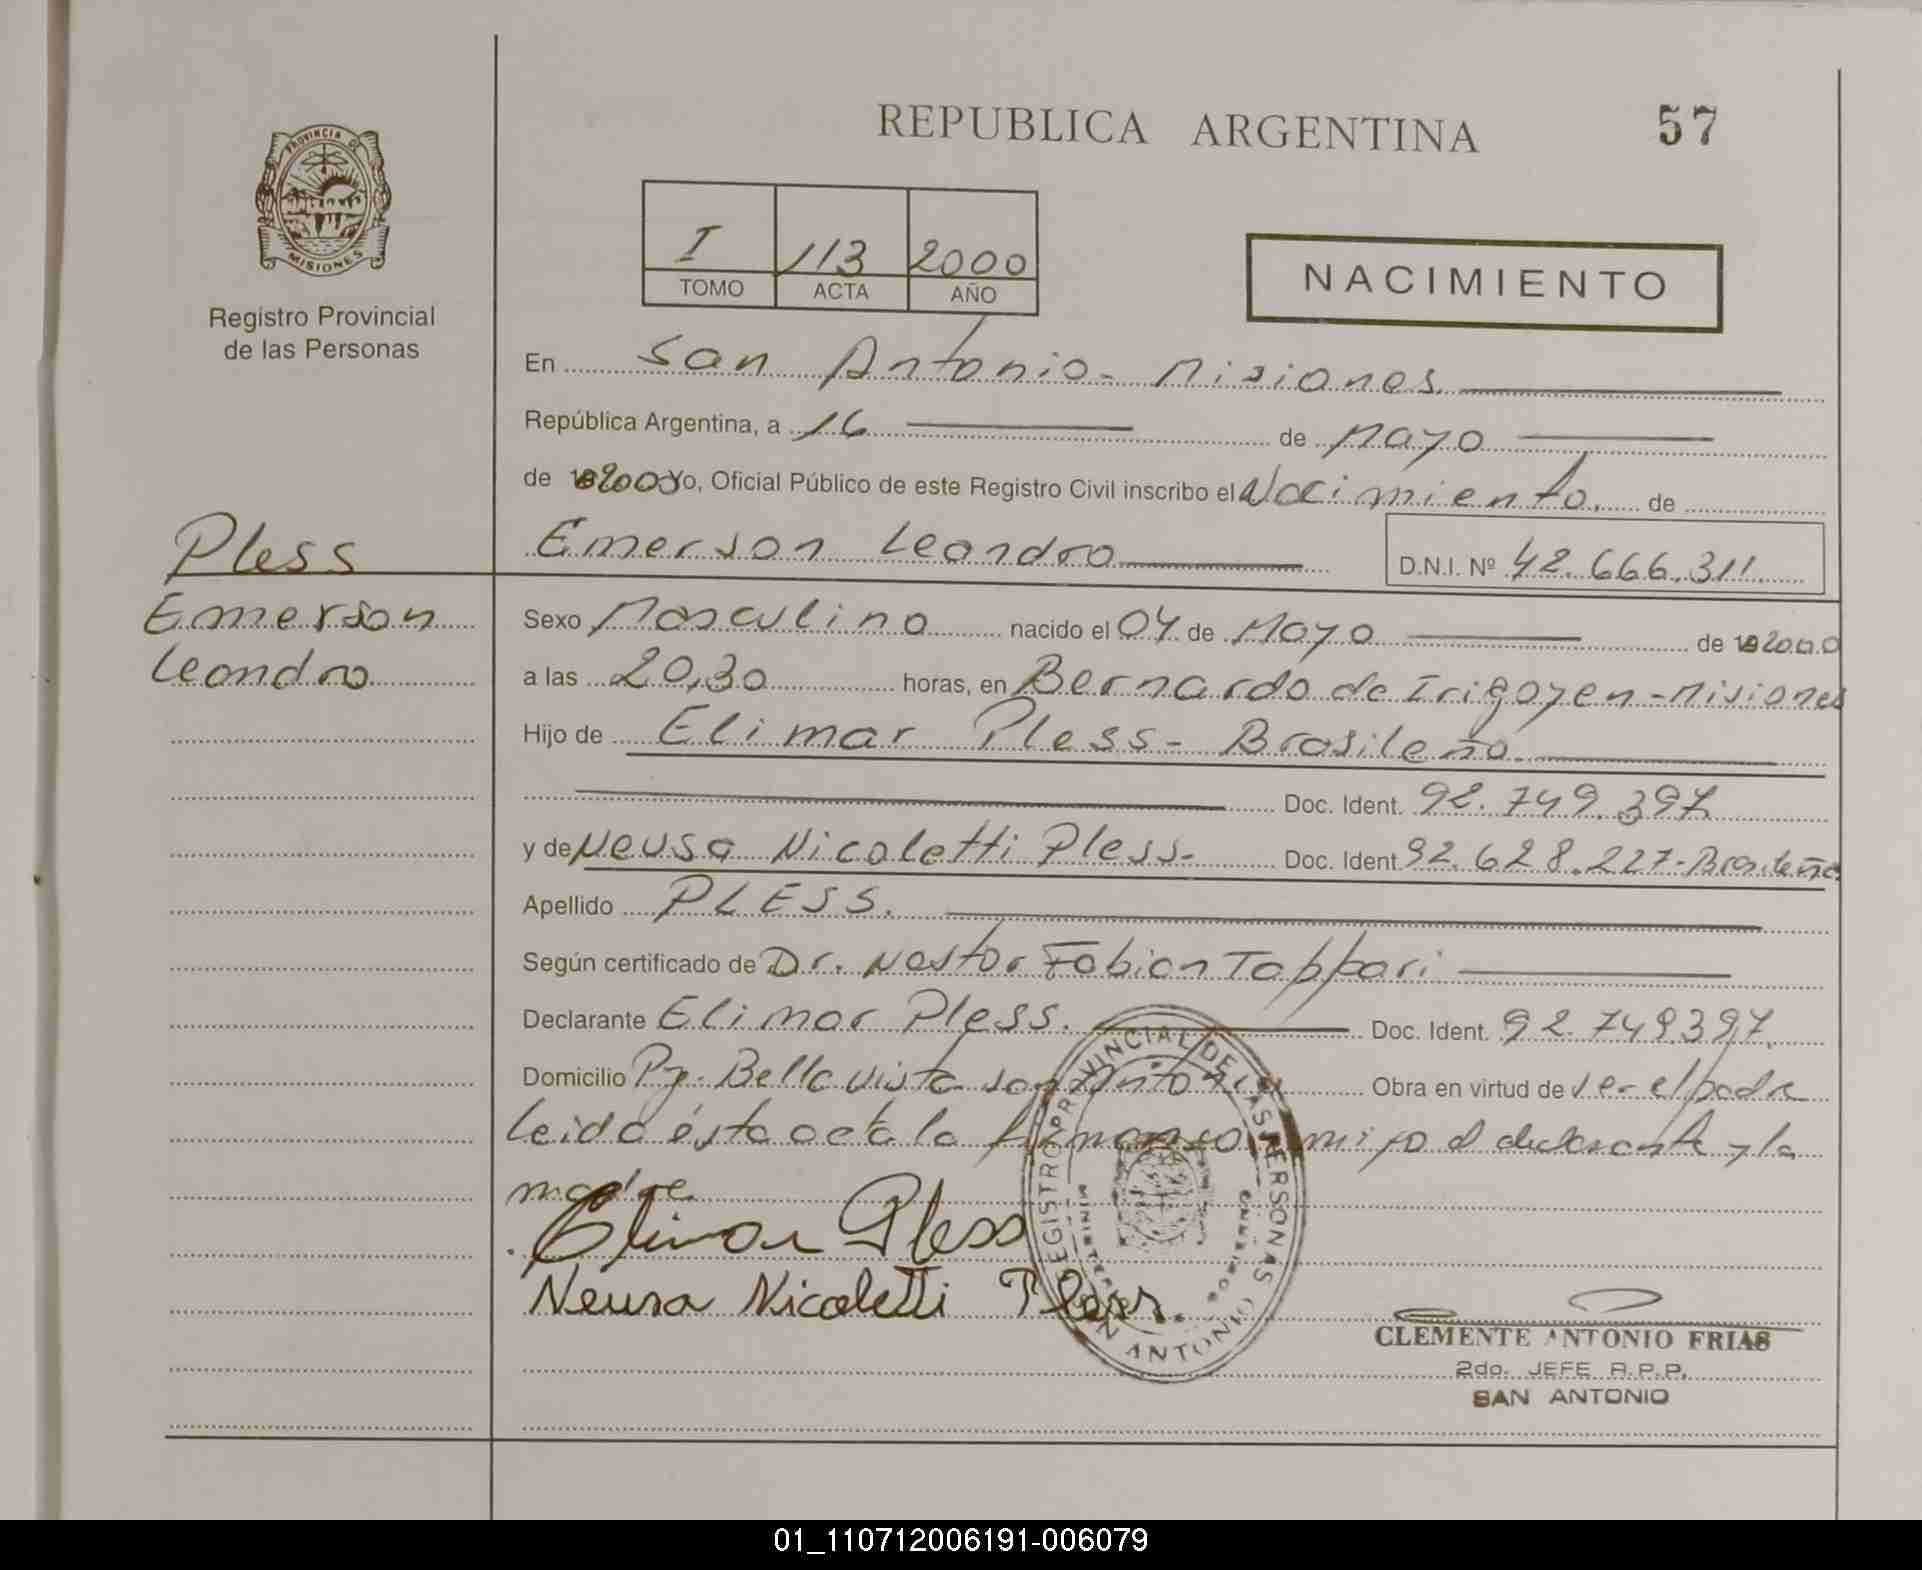 REPUBLICA ARGENTINA
57
PROVINCIA DE
MISIONES
Registro Provincial
de las Personas
I 113 2000
TOMO ACTA AÑO
NACIMIENTO
En San Antonio - Misiones
República Argentina, a 16 de Mayo
de 2000 Yo, Oficial Público de este Registro Civil inscribo el Nacimiento. de
Emerson Leandro D.N.I. Nº 42.666.311
Pless
Emerson
Leandro
Sexo Masculino nacido el 04 de Mayo de 2000
a las 20,30 horas, en Bernardo de Irigoyen - Misiones
Hijo de Elimar Pless - Brasileño.
Doc. Ident. 92.749.397
y de Neusa Nicoletti Pless - Doc. Ident. 92.628.227 - Brasileña
Apellido PLESS.
Según certificado de Dr. Nestor Fabian Tappari
Declarante Elimar Pless. Doc. Ident. 92.749397.
Domicilio Pje. Bella vista San Antonio Obra en virtud de ser el padre
Leida ésta acta la firman conmigo el declarante y la
madre
Elimar Pless
Neusa Nicoletti Pless.
REGISTRO PROVINCIAL DE LAS PERSONAS
SAN ANTONIO
CLEMENTE ANTONIO FRIAS
2do. JEFE R.P.P.
SAN ANTONIO
01_110712006191-006079